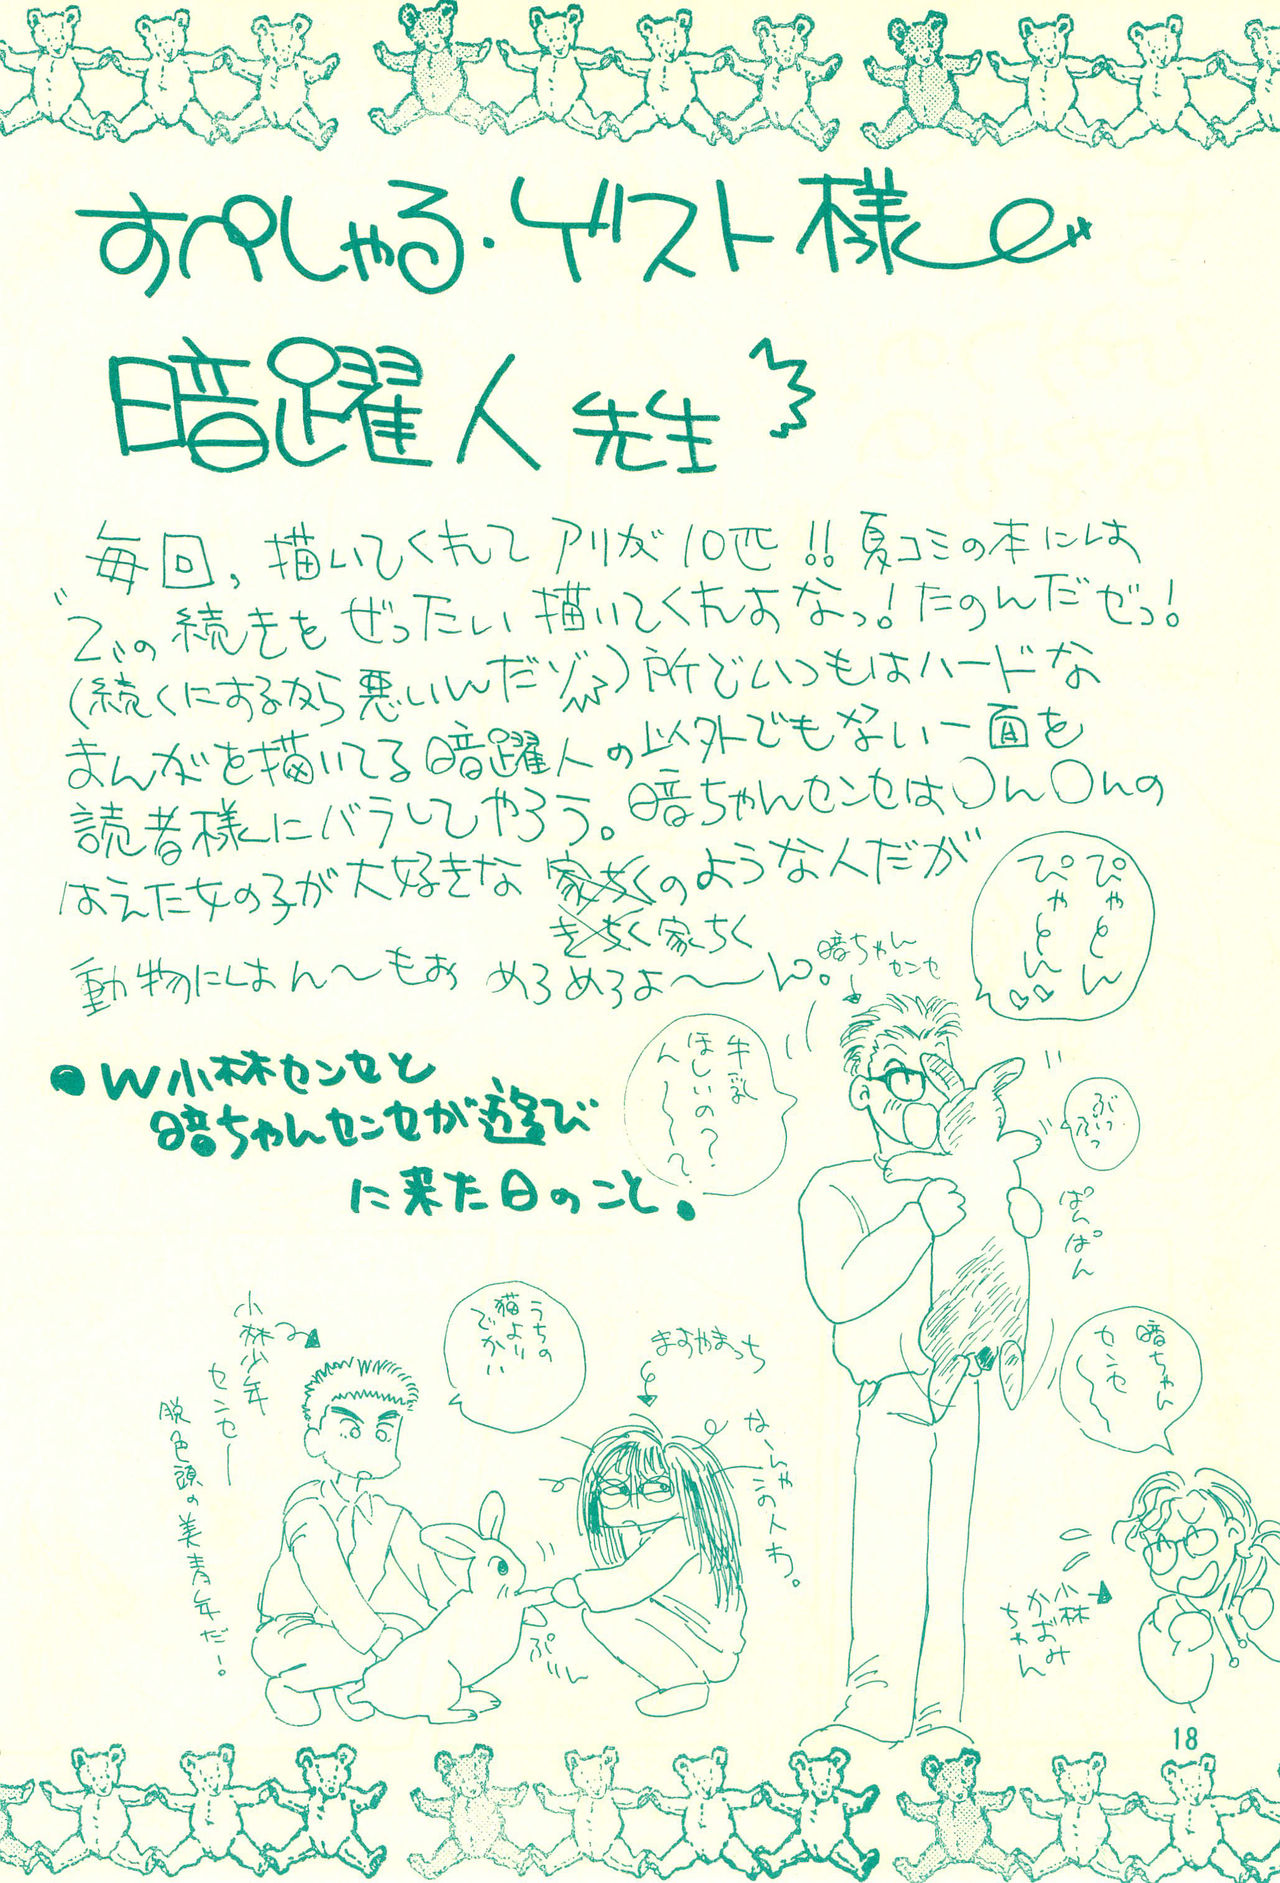 すぺしゃる・ゲスト様
暗躍人 先生
毎回、描いてくれて アリが10匹!!夏コミの本には
"Zいの続きをぜったい描いてくれよなっ!たのんだぜっ!
(続くにするなら悪いんだゾ)所でいつもはハードな
まんがを描いてる暗躍人の以外でもない一面を
読者様にバラしてやろう。暗ちゃんセンセは〇ん〇んの
はえた女の子が大好きな のような人だが
きちく家ちく
動物にはん〜もお めろめろよ〜ん。
ぴゃとん
ぴゃとん♡♡
暗ちゃん
センセ
牛乳
ほしいの?
ん〜〜?
ぶっ
ぶっ
ぱんぱん
●W小林センセと
暗ちゃんセンセが遊び
に来た日のこと。
暗ちゃん
センセ〜
うちの
猫より
でかい
小林少年
センセー
脱色頭の美青年だ!
ますやまっち
なーんやこの人わ。
ぷいん
小林
かおみ
ちゃん
18